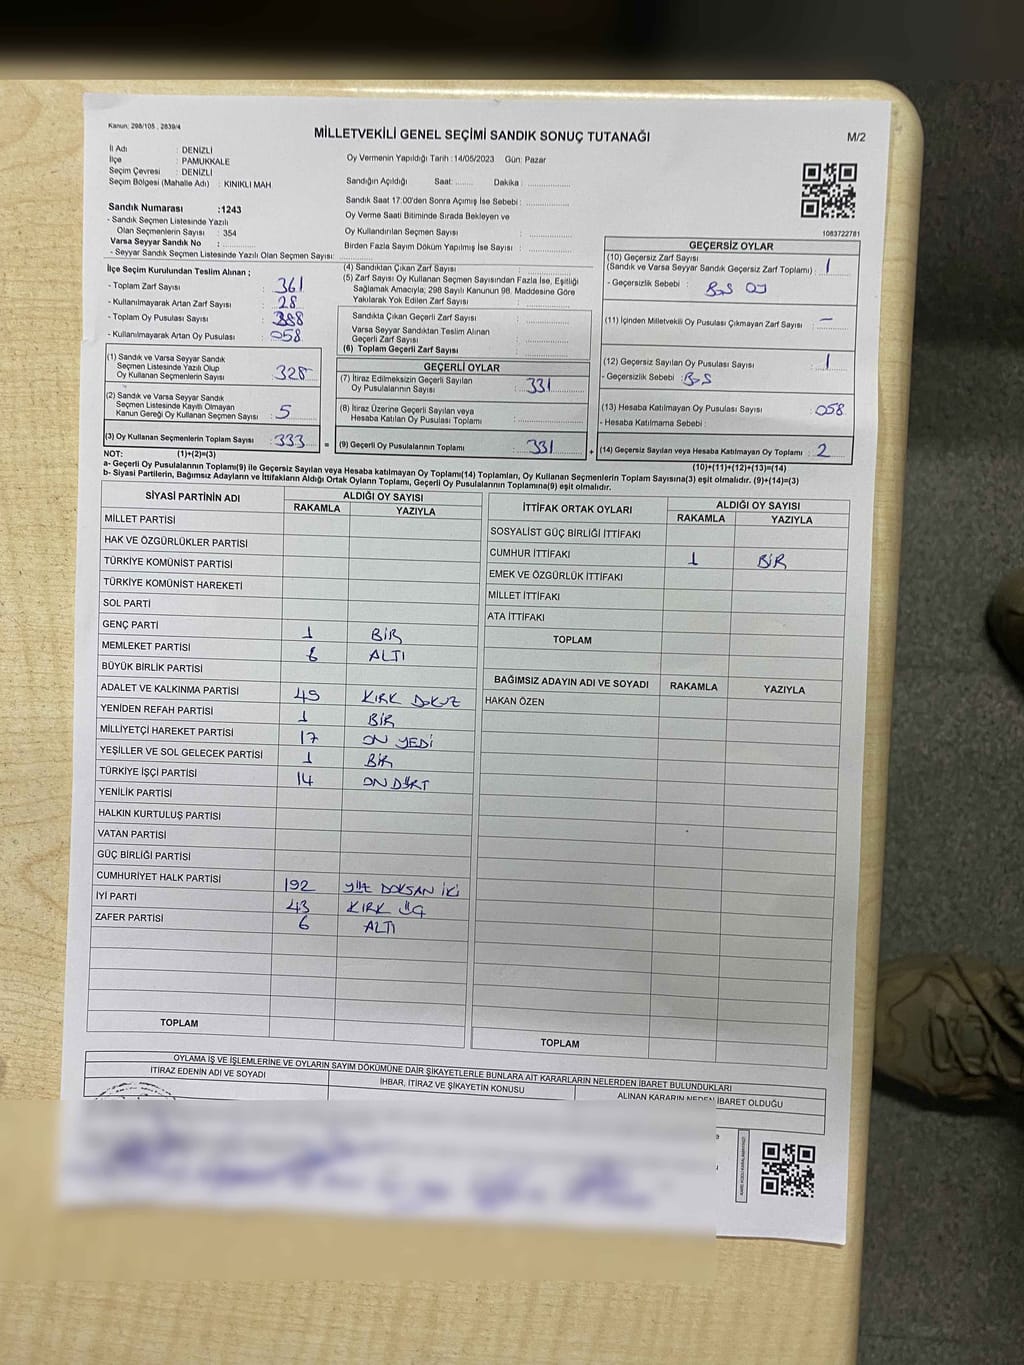 Kanun: 298/105 , 2839/4
MİLLETVEKİLİ GENEL SEÇİMİ SANDIK SONUÇ TUTANAĞI
M/2
İl Adı : DENİZLİ
İlçe : PAMUKKALE
Seçim Çevresi : DENİZLİ
Seçim Bölgesi (Mahalle Adı) : KINIKLI MAH
Sandık Numarası :1243
- Sandık Seçmen Listesinde Yazılı
Olan Seçmenlerin Sayısı : 354
Varsa Seyyar Sandık No :
- Seyyar Sandık Seçmen Listesinde Yazılı Olan Seçmen Sayısı:
Oy Vermenin Yapıldığı Tarih :14/05/2023 Gün: Pazar
Sandığın Açıldığı Saat: Dakika :
Sandık Saat 17:00'den Sonra Açımış İse Sebebi :
Oy Verme Saati Bitiminde Sırada Bekleyen ve
Oy Kullandırılan Seçmen Sayısı :
Birden Fazla Sayım Döküm Yapılmış İse Sayısı :
1083722781
İlçe Seçim Kurulundan Teslim Alınan ;
- Toplam Zarf Sayısı : 361
- Kullanılmayarak Artan Zarf Sayısı : 28
- Toplam Oy Pusulası Sayısı : 388
- Kullanılmayarak Artan Oy Pusulası : 058
(1) Sandık ve Varsa Seyyar Sandık
Seçmen Listesinde Yazılı Olup
Oy Kullanan Seçmenlerin Sayısı : 328
(2) Sandık ve Varsa Seyyar Sandık
Seçmen Listesinde Kayıtlı Olmayan
Kanun Gereği Oy Kullanan Seçmen Sayısı : 5
(3) Oy Kullanan Seçmenlerin Toplam Sayısı : 333 =
(4) Sandıktan Çıkan Zarf Sayısı :
(5) Zarf Sayısı Oy Kullanan Seçmen Sayısından Fazla İse, Eşitliği
Sağlamak Amacıyla; 298 Sayılı Kanunun 98. Maddesine Göre
Yakılarak Yok Edilen Zarf Sayısı :
Sandıkta Çıkan Geçerli Zarf Sayısı :
Varsa Seyyar Sandıktan Teslim Alınan
Geçerli Zarf Sayısı :
(6) Toplam Geçerli Zarf Sayısı :
GEÇERLİ OYLAR
(7) İtiraz Edilmeksizin Geçerli Sayılan
Oy Pusulalarının Sayısı : 331
(8) İtiraz Üzerine Geçerli Sayılan veya
Hesaba Katılan Oy Pusulası Toplamı :
(9) Geçerli Oy Pusulalarının Toplamı : 331 +
GEÇERSİZ OYLAR
(10) Geçersiz Zarf Sayısı
(Sandık ve Varsa Seyyar Sandık Geçersiz Zarf Toplamı) : 1
- Geçersizlik Sebebi : BOŞ OY
(11) İçinden Milletvekili Oy Pusulası Çıkmayan Zarf Sayısı : –
(12) Geçersiz Sayılan Oy Pusulası Sayısı : 1
- Geçersizlik Sebebi : BOŞ
(13) Hesaba Katılmayan Oy Pusulası Sayısı : 058
- Hesaba Katılmama Sebebi :
(14) Geçersiz Sayılan veya Hesaba Katılmayan Oy Toplamı : 2
NOT: (1)+(2)=(3)
(10)+(11)+(12)+(13)=(14)
a- Geçerli Oy Pusulalarının Toplamı(9) ile Geçersiz Sayılan veya Hesaba katılmayan Oy Toplamı(14) Toplamları, Oy Kullanan Seçmenlerin Toplam Sayısına(3) eşit olmalıdır. (9)+(14)=(3)
b- Siyasi Partilerin, Bağımsız Adayların ve İttifakların Aldığı Ortak Oyların Toplamı, Geçerli Oy Pusulalarının Toplamına(9) eşit olmalıdır.
SİYASİ PARTİNİN ADI ALDIĞI OY SAYISI
RAKAMLA YAZIYLA
MİLLET PARTİSİ
HAK VE ÖZGÜRLÜKLER PARTİSİ
TÜRKİYE KOMÜNİST PARTİSİ
TÜRKİYE KOMÜNİST HAREKETİ
SOL PARTİ
GENÇ PARTİ 1 BİR
MEMLEKET PARTİSİ 6 ALTI
BÜYÜK BİRLİK PARTİSİ
ADALET VE KALKINMA PARTİSİ 49 KIRK DOKUZ
YENİDEN REFAH PARTİSİ 1 BİR
MİLLİYETÇİ HAREKET PARTİSİ 17 ON YEDİ
YEŞİLLER VE SOL GELECEK PARTİSİ 1 BİR
TÜRKİYE İŞÇİ PARTİSİ 14 ON DÖRT
YENİLİK PARTİSİ
HALKIN KURTULUŞ PARTİSİ
VATAN PARTİSİ
GÜÇ BİRLİĞİ PARTİSİ
CUMHURİYET HALK PARTİSİ 192 YÜZ DOKSAN İKİ
İYİ PARTİ 43 KIRK ÜÇ
ZAFER PARTİSİ 6 ALTI
TOPLAM
İTTİFAK ORTAK OYLARI ALDIĞI OY SAYISI
RAKAMLA YAZIYLA
SOSYALİST GÜÇ BİRLİĞİ İTTİFAKI
CUMHUR İTTİFAKI 1 BİR
EMEK VE ÖZGÜRLÜK İTTİFAKI
MİLLET İTTİFAKI
ATA İTTİFAKI
TOPLAM
BAĞIMSIZ ADAYIN ADI VE SOYADI RAKAMLA YAZIYLA
HAKAN ÖZEN
TOPLAM
OYLAMA İŞ VE İŞLEMLERİNE VE OYLARIN SAYIM DÖKÜMÜNE DAİR ŞİKAYETLERLE BUNLARA AİT KARARLARIN NELERDEN İBARET BULUNDUKLARI
İTİRAZ EDENİN ADI VE SOYADI
İHBAR, İTİRAZ VE ŞİKAYETİN KONUSU
ALINAN KARARIN NEDEN İBARET OLDUĞU